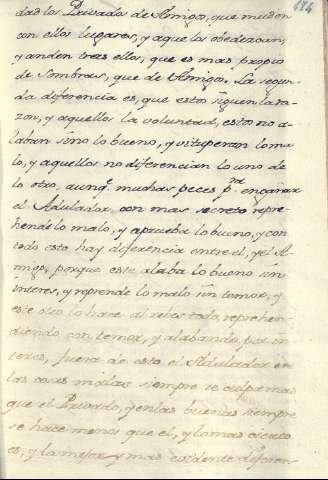 174
dad los Privados de Amigos, que muden
con ellos lugares, y aque los obedezcan,
y anden tras ellos, que es mas propio
de Sombras, que de Amigos. La segun-
da diferencia es, que estos siguen la ra-
zon, y aquellos la voluntad, estos no a-
laban sino lo bueno, y vituperan lo ma-
lo, y aquellos no diferencian lo uno de
lo otro, aunq.e muchas veces p.a engañar
el Adulador con mas secreto repre-
hende lo malo, y aprueba lo bueno, y con
todo esto hay diferencia entre el, y el A-
migo, porque este alaba lo bueno sin
interes, y reprende lo malo sin temor, y
este otro lo hace al rebes todo, reprehen-
diendo con temor, y alabando por in-
teres, fuera de esto el Adulador en
las cosas malas siempre se culpa mas
que el Privado, y en las buenas siempre
se hace menos que el, y lo mas cierto
es, y la mejor y mas evidente diferen-